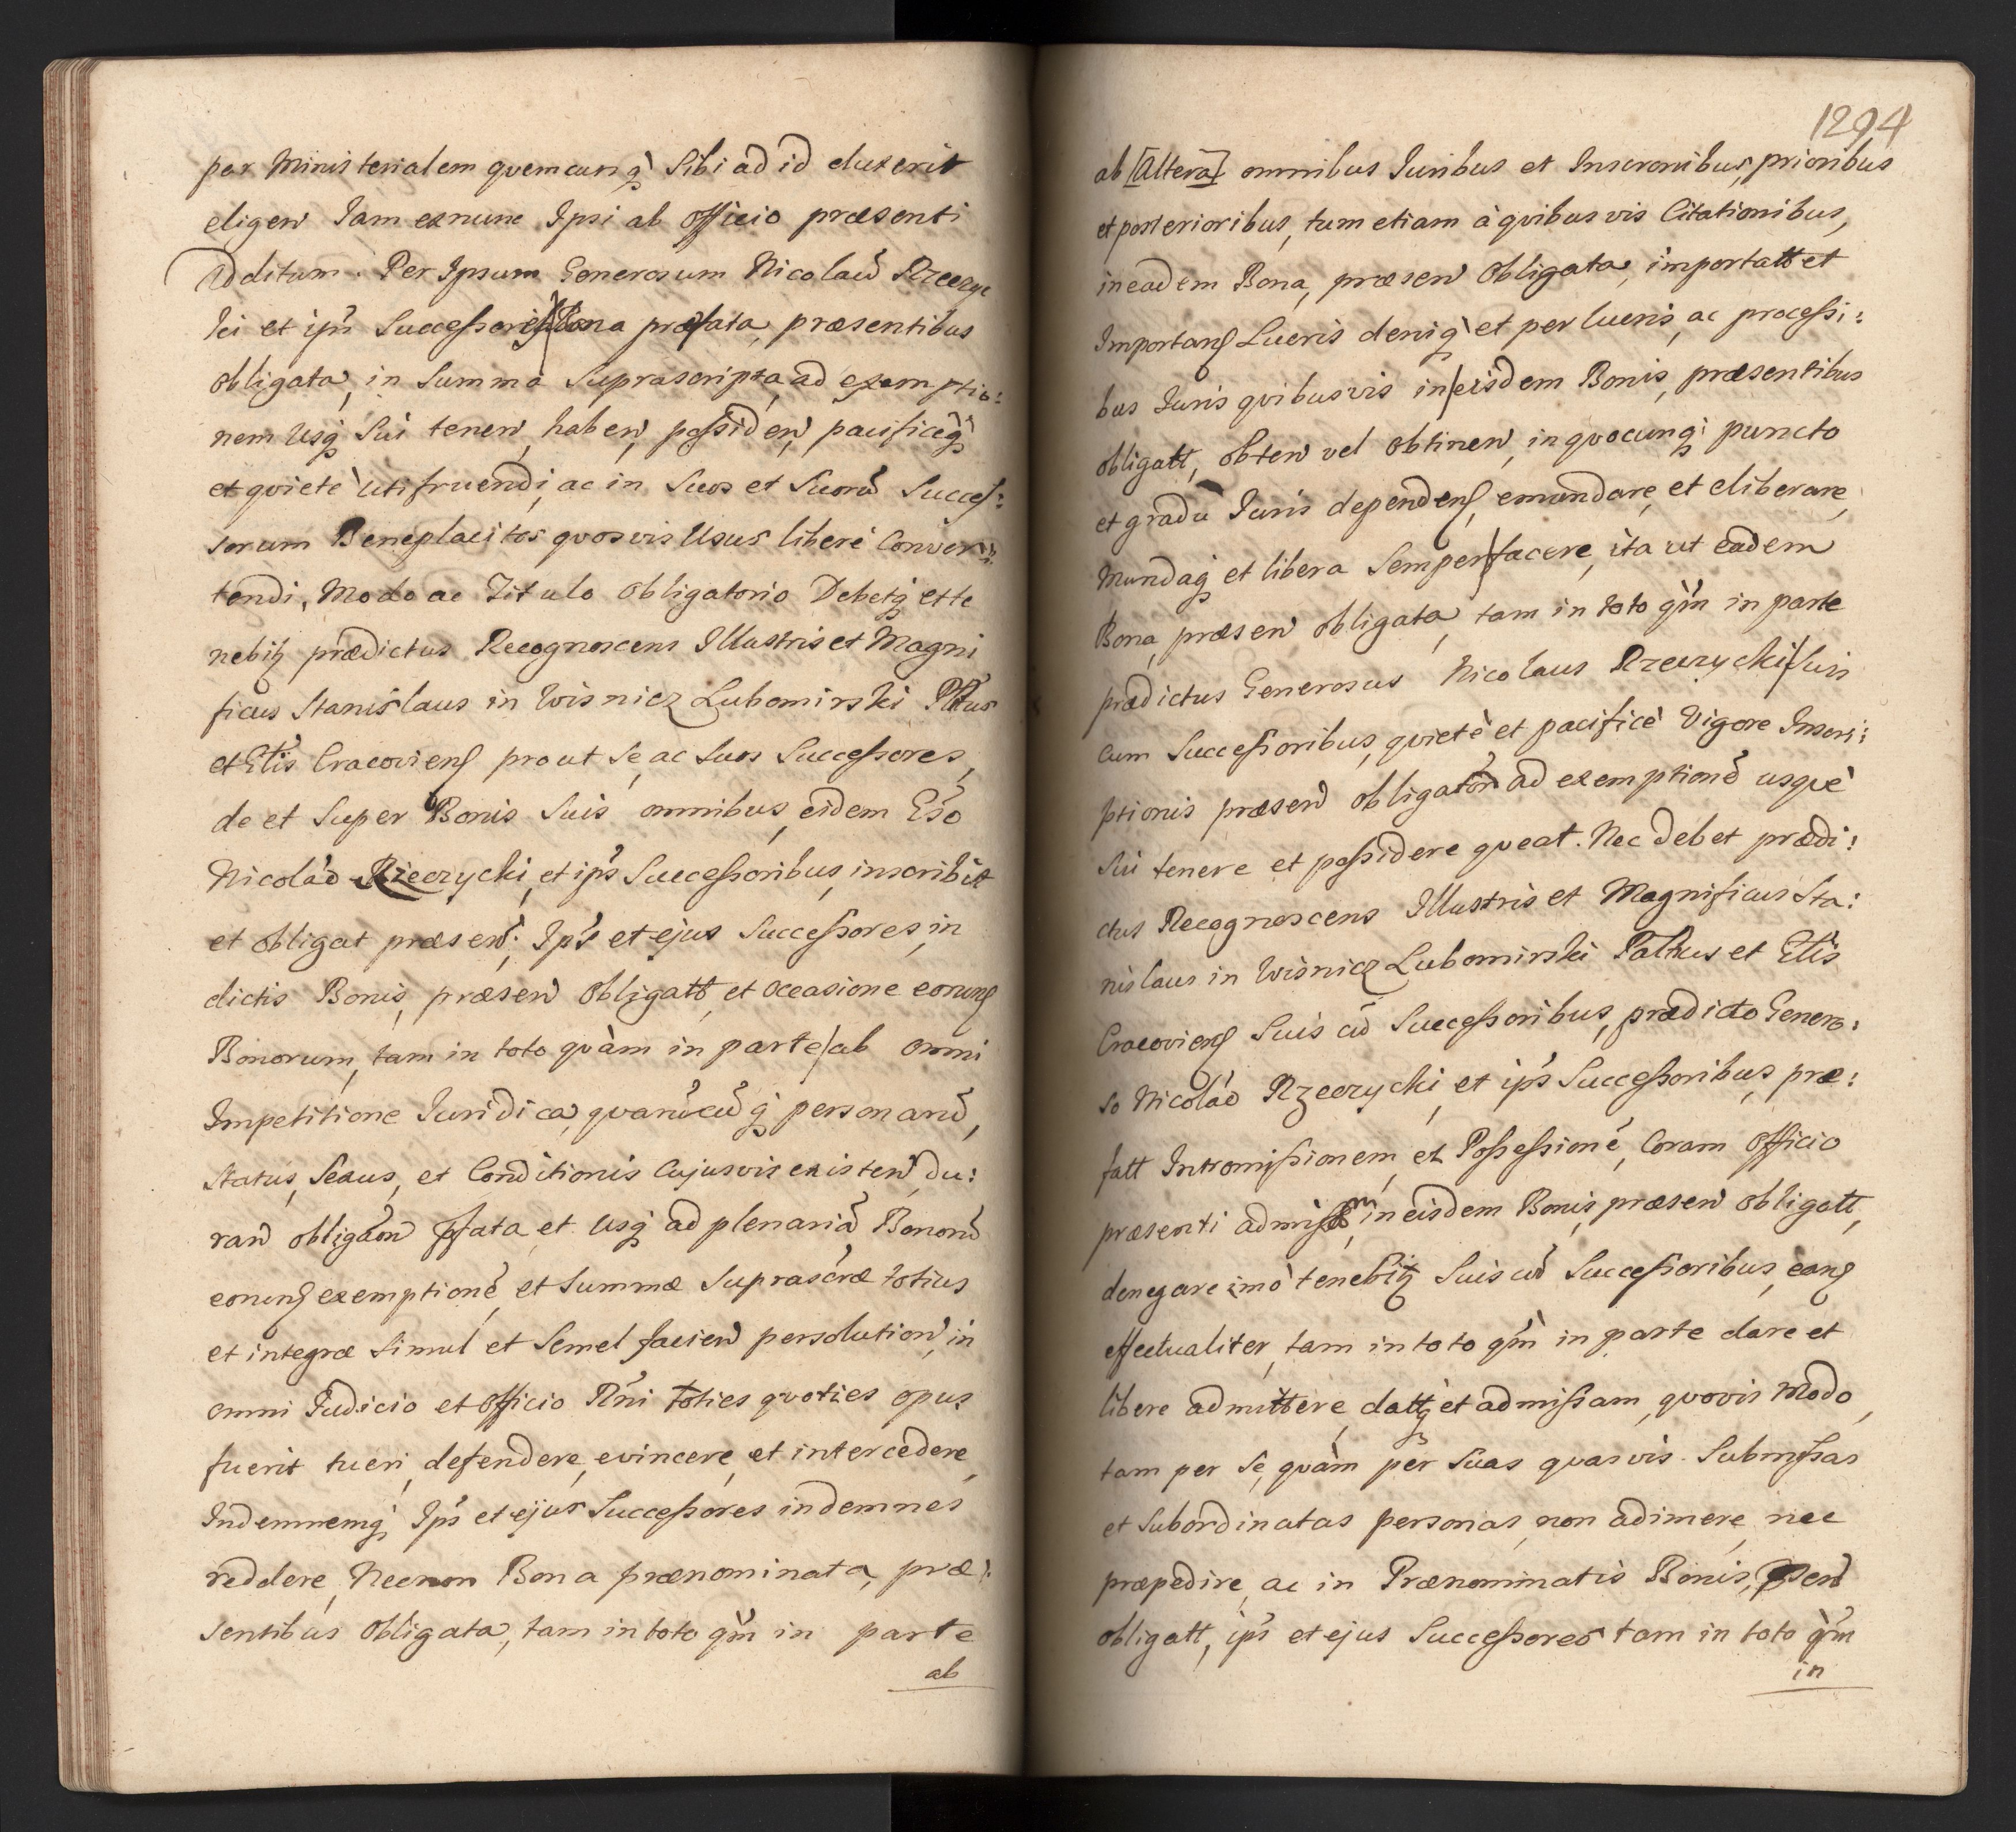 per Ministerialem quemcunq̀ Sibi ad id duxerit
eligen̄ Iam exnunc Ipsi ab officio præsenti
additum. Per Ipsum Generosum Nicolaū Rzeczyc
ki et ips̄ Successores Bona præfata, præsentibus
obligata, in Summa Suprascripta, ad exemptio:
nem Usq̀ Sui tenen̄, haben̄, possiden̄, pacificeq̀
et quietè utifruendi, ac in Suos et Suorū Succes:
sorum Beneplacitos quosvis Usus liberè Conver:
tendi, Modo ac Titulo obligatorio Debetq̀ et te
nebitꝫ prædictus Recognoscens Illustris et Magni
ficus Stanislaus in Wisnicz Lubomirski Pttus
et Gtis̄ Cracovienſ prout Se, ac Suos Successores,
de et Super Bonis Suis omnibus, eidem Gso
Nicolaō Rzeczycki, et ips̄ Successoribus, inscribit
et obligat præsen̄: Ips̄ et ejus Successores, in
dictis Bonis, præsen̄ obligatt, et occasione eorunꝫ
Bonorum, tam in toto quàm in parte, ab omni
Impetitione Iuridica, quarūcūq̀ personarū,
Status, Sexus, et Conditionis Cujusvis existen̄, du:
ran̄ obligaōn pfata, et Usq̀ ad plenariā Bonorū
eorunꝫ exemptionē, et Summæ Suprascræ totius
et integræ Simul et Semel facien̄ persolution̄, in
omni Iudicio et officio Rn̄i toties quoties opus
fuerit tueri, defendere, evincere, et intercedere,
Indemnemq̀ Ips̄ et ejus Successores indemnes
reddere, Necnon Bona prænominata, præ:
sentibus obligata, tam in toto qm̀ in parte
ab
1294
ab [altera] omnibus Iuribus et Inscronibus, prioribus
et posterioribus, tum etiam à quibusvis Citationibus,
in eadem Bona, præsen̄ obligata, importatt et
Importanꝫ Lucris deniq̀ et perlucris, ac processi:
bus Iuris quibusvis in eisdem Bonis, præsentibus
obligatt, obten̄ vel obtinen̄, in quocunq̀ puncto
et gradu Iuris dependenꝫ, emundare, et eliberare,
Mundaq̀ et libera Semper facere, ita ut eadem
Bona, præsen̄ obligata, tam in toto qm̀ in parte
prædictus Generosus Nicolaus Rzeczycki Suis
cum Successoribus, quietè et pacificè Vigore Inscri:
ptionis præsen̄ obligatoriæ ad exemptionē usquè
Sui tenere et possidere queat. Nec debet prædi:
ctus Recognoscens Illustris et Magnificus Sta:
nislaus in Wisnicz Lubomirski Palttus et Gtis̄
Cracovienꝫ Suis cū Successoribus, prædicto Genero:
so Nicolaō Rzeczycki, et ips̄ Successoribus, præ:
fatt Intromissionem, et Possessionē, Coram officio
præsenti admissam, in eisdem Bonis, præsen̄ obligatt,
denegare imò tenebitꝫ Suis cū Successoribus, eanꝫ
effectualiter, tam in toto qm̀ in parte dare et
libere admittere, dattq̀ et admissam, quovis modo,
tam per Se, quàm per Suas quasvis Submissas
et Subordinatas personas, non adimere, nec
præpedire, ac in Prænominatis Bonis, psen̄
obligatt, ips̄ et ejus Successores tam in toto qm̀
in